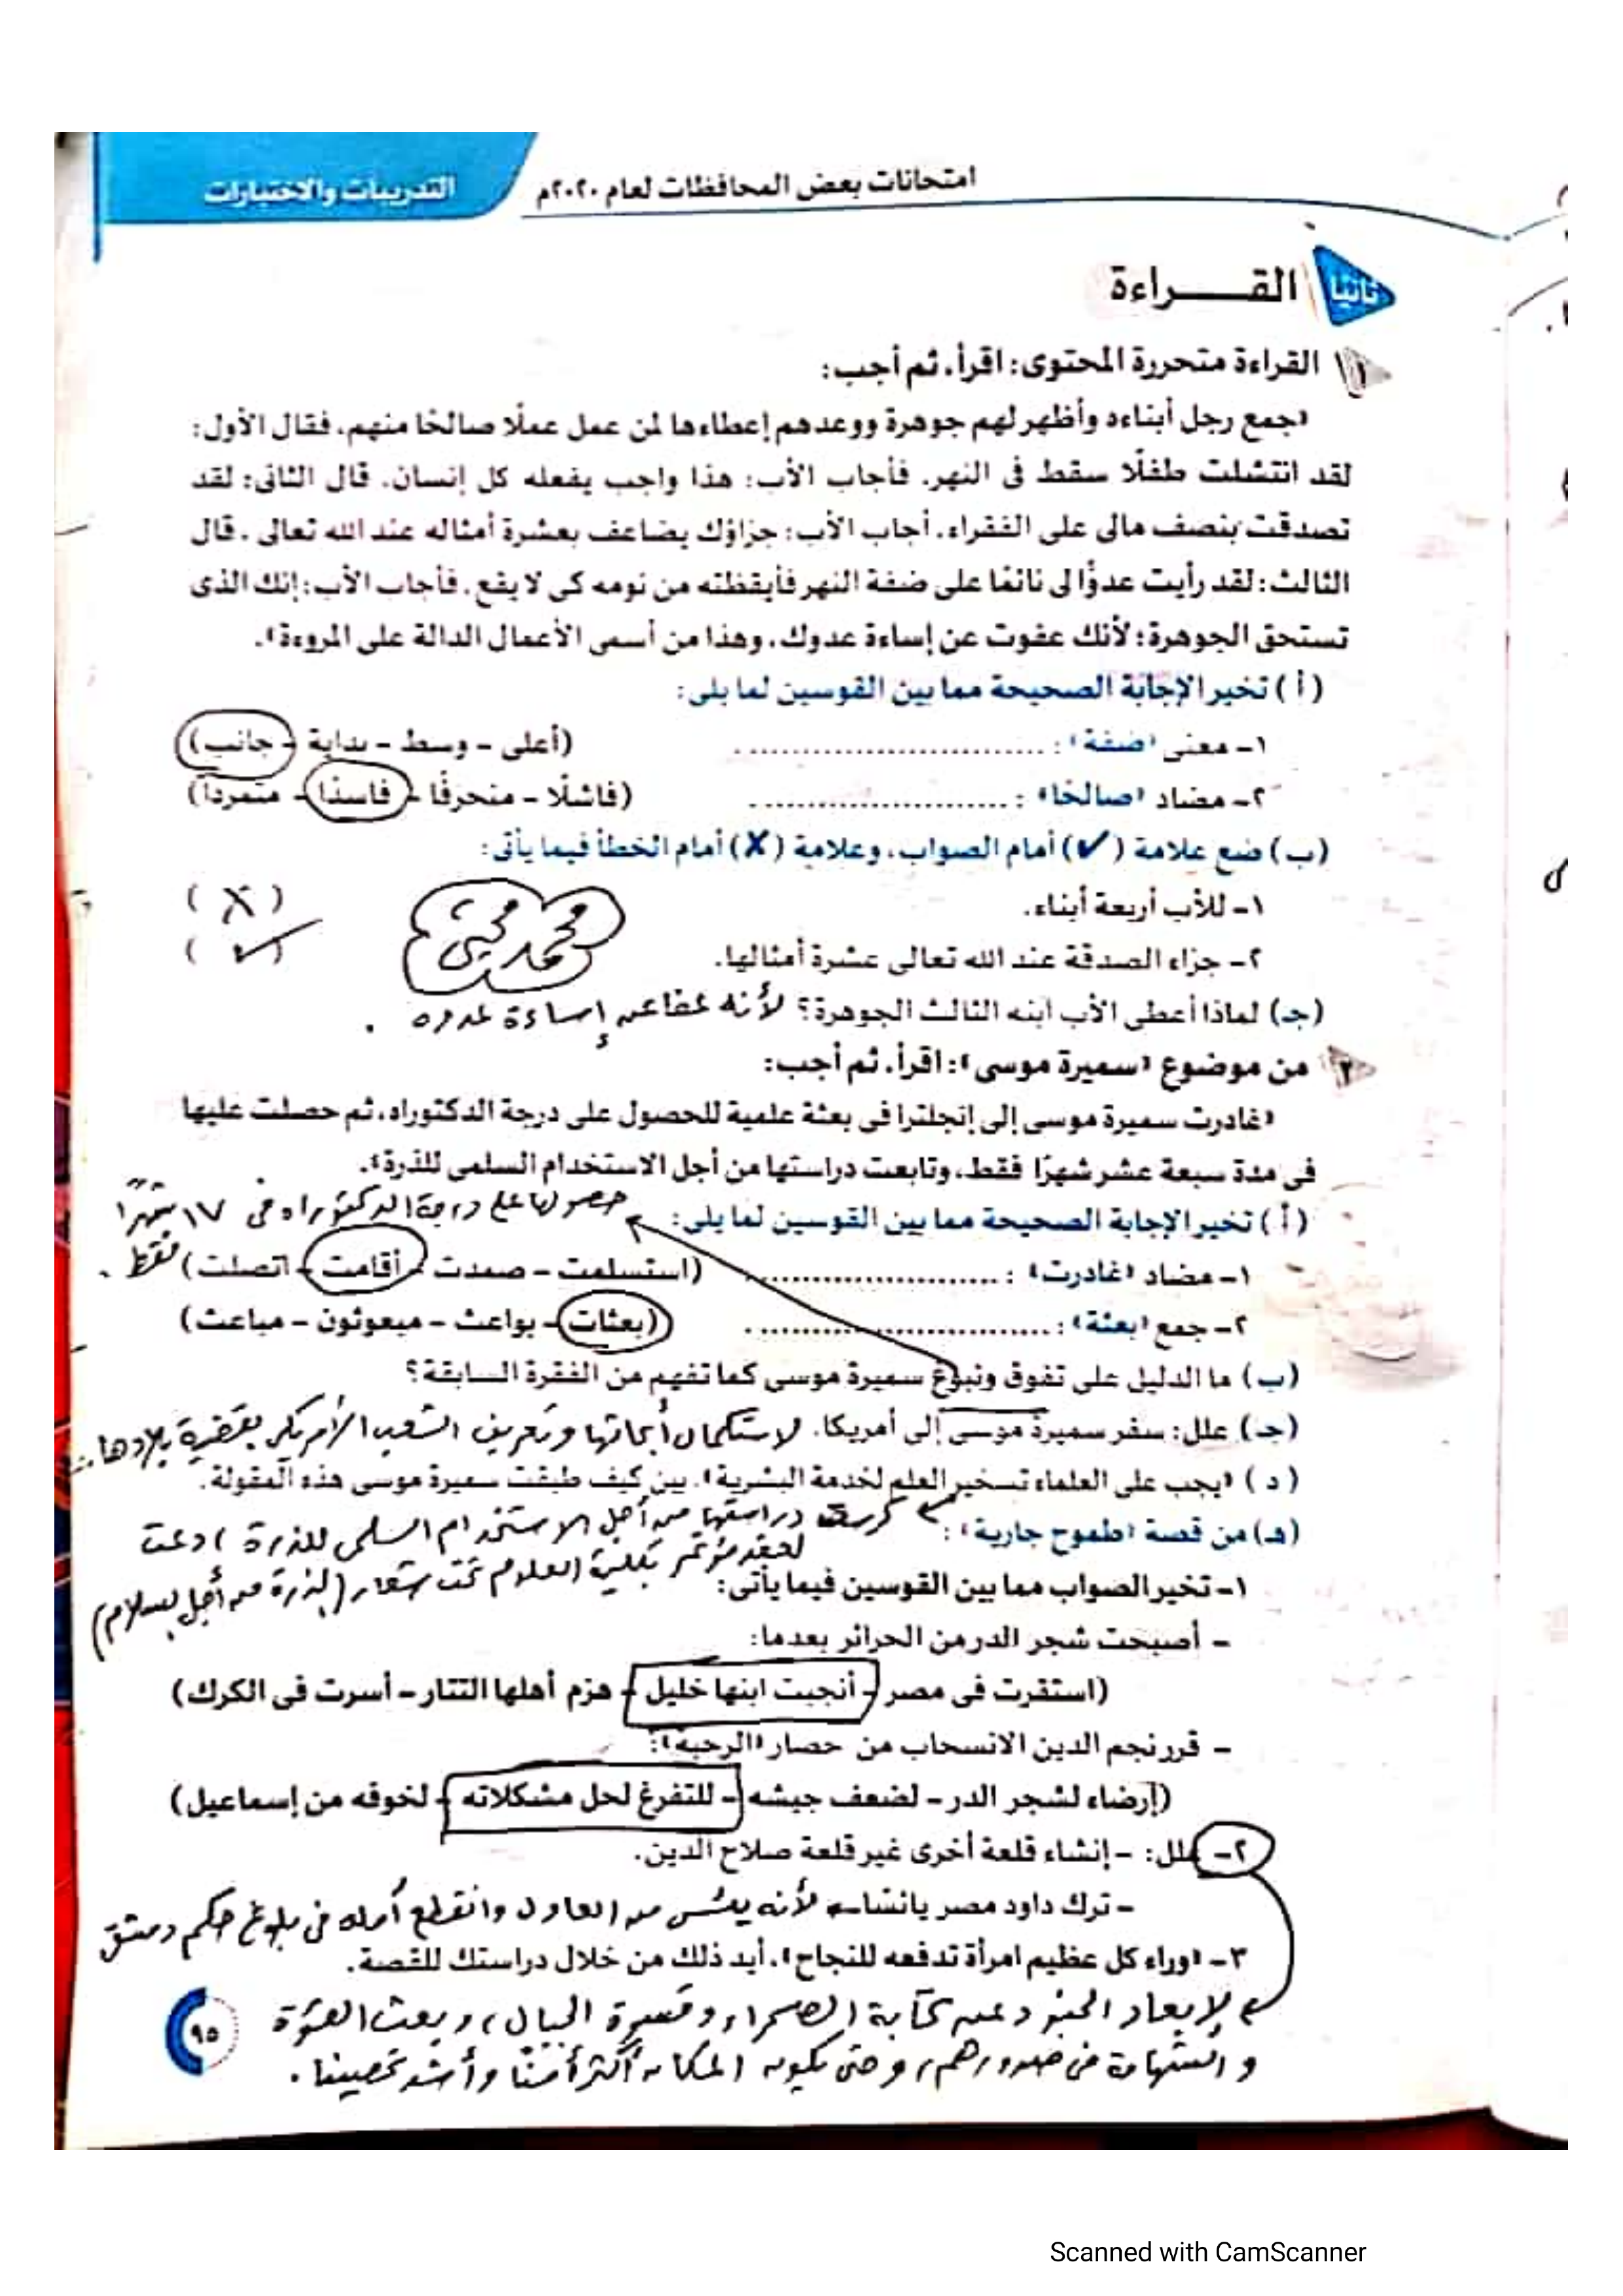 امتحانات بعض المحافظات لعام ٢٠٢٠م
التدريبات والاختبارات
ثانيا القـــراءة
١ القراءة متحررة المحتوى: اقرأ، ثم أجب:
«جمع رجل أبناءه وأظهر لهم جوهرة ووعدهم إعطاءها لمن عمل عملًا صالحًا منهم، فقال الأول:
لقد انتشلت طفلًا سقط فى النهر. فأجاب الأب: هذا واجب يفعله كل إنسان. قال الثانى: لقد
تصدقت بنصف مالى على الفقراء. أجاب الأب: جزاؤك يضاعف بعشرة أمثاله عند الله تعالى. قال
الثالث: لقد رأيت عدوًّا لى نائمًا على ضفة النهر فأيقظته من نومه كى لا يقع. فأجاب الأب: إنك الذى
تستحق الجوهرة؛ لأنك عفوت عن إساءة عدوك، وهذا من أسمى الأعمال الدالة على المروءة».
(أ) تخير الإجابة الصحيحة مما بين القوسين لما يلى:
١- معنى «ضفة»: .............................. (أعلى - وسط - بداية - جانب)
٢- مضاد «صالحًا»: .............................. (فاشلًا - منحرفًا - فاسدًا - متمردًا)
(ب) ضع علامة (✓) أمام الصواب، وعلامة (✗) أمام الخطأ فيما يأتى:
١- للأب أربعة أبناء. (X)
٢- جزاء الصدقة عند الله تعالى عشرة أمثالها. (✓)
محمد محيى
(جـ) لماذا أعطى الأب ابنه الثالث الجوهرة؟ لأنه عفا عن إساءة عدوه .
٢ من موضوع «سميرة موسى»: اقرأ، ثم أجب:
«غادرت سميرة موسى إلى إنجلترا فى بعثة علمية للحصول على درجة الدكتوراه، ثم حصلت عليها
فى مدة سبعة عشر شهرًا فقط، وتابعت دراستها من أجل الاستخدام السلمى للذرة».
(أ) تخير الإجابة الصحيحة مما بين القوسين لما يلى:
حصولها على درجة الدكتوراه فى ١٧ شهرًا
فقط .
١- مضاد «غادرت»: .............................. (استسلمت - صمدت - أقامت - اتصلت)
٢- جمع «بعثة»: .............................. (بعثات - بواعث - مبعوثون - مباعث)
(ب) ما الدليل على تفوق ونبوغ سميرة موسى كما تفهم من الفقرة السابقة؟
(جـ) علل: سفر سميرة موسى إلى أمريكا. لاستكمال أبحاثها وتعريف الشعب الأمريكى بقضية بلادها.
(د) «يجب على العلماء تسخير العلم لخدمة البشرية». بين كيف طبقت سميرة موسى هذه المقولة.
كرست دراستها من أجل الاستخدام السلمى للذرة، ودعت
(هـ) من قصة «طموح جارية»:
لعقد مؤتمر بكلية العلوم تحت شعار (الذرة من أجل السلام)
١- تخير الصواب مما بين القوسين فيما يأتى:
- أصبحت شجر الدر من الحرائر بعدما:
(استقرت فى مصر - أنجبت ابنها خليل - هزم أهلها التتار - أسرت فى الكرك)
- قرر نجم الدين الانسحاب من حصار «الرحبة»:
(إرضاء لشجر الدر - لضعف جيشه - للتفرغ لحل مشكلاته - لخوفه من إسماعيل)
٢- علل: - إنشاء قلعة أخرى غير قلعة صلاح الدين.
- ترك داود مصر يائسًا. لأنه يئس من العادل وانقطع أمله فى بلوغ حكم دمشق
٣- «وراء كل عظيم امرأة تدفعه للنجاح». أيد ذلك من خلال دراستك للقصة.
لإبعاد الجنود عن كآبة الصحراء وقسوة الجبال، وبعث القوة
والشهامة فى صدورهم، وحتى يكون المكان أكثر أمنًا وأشد تحصينا .
٩٥
Scanned with CamScanner